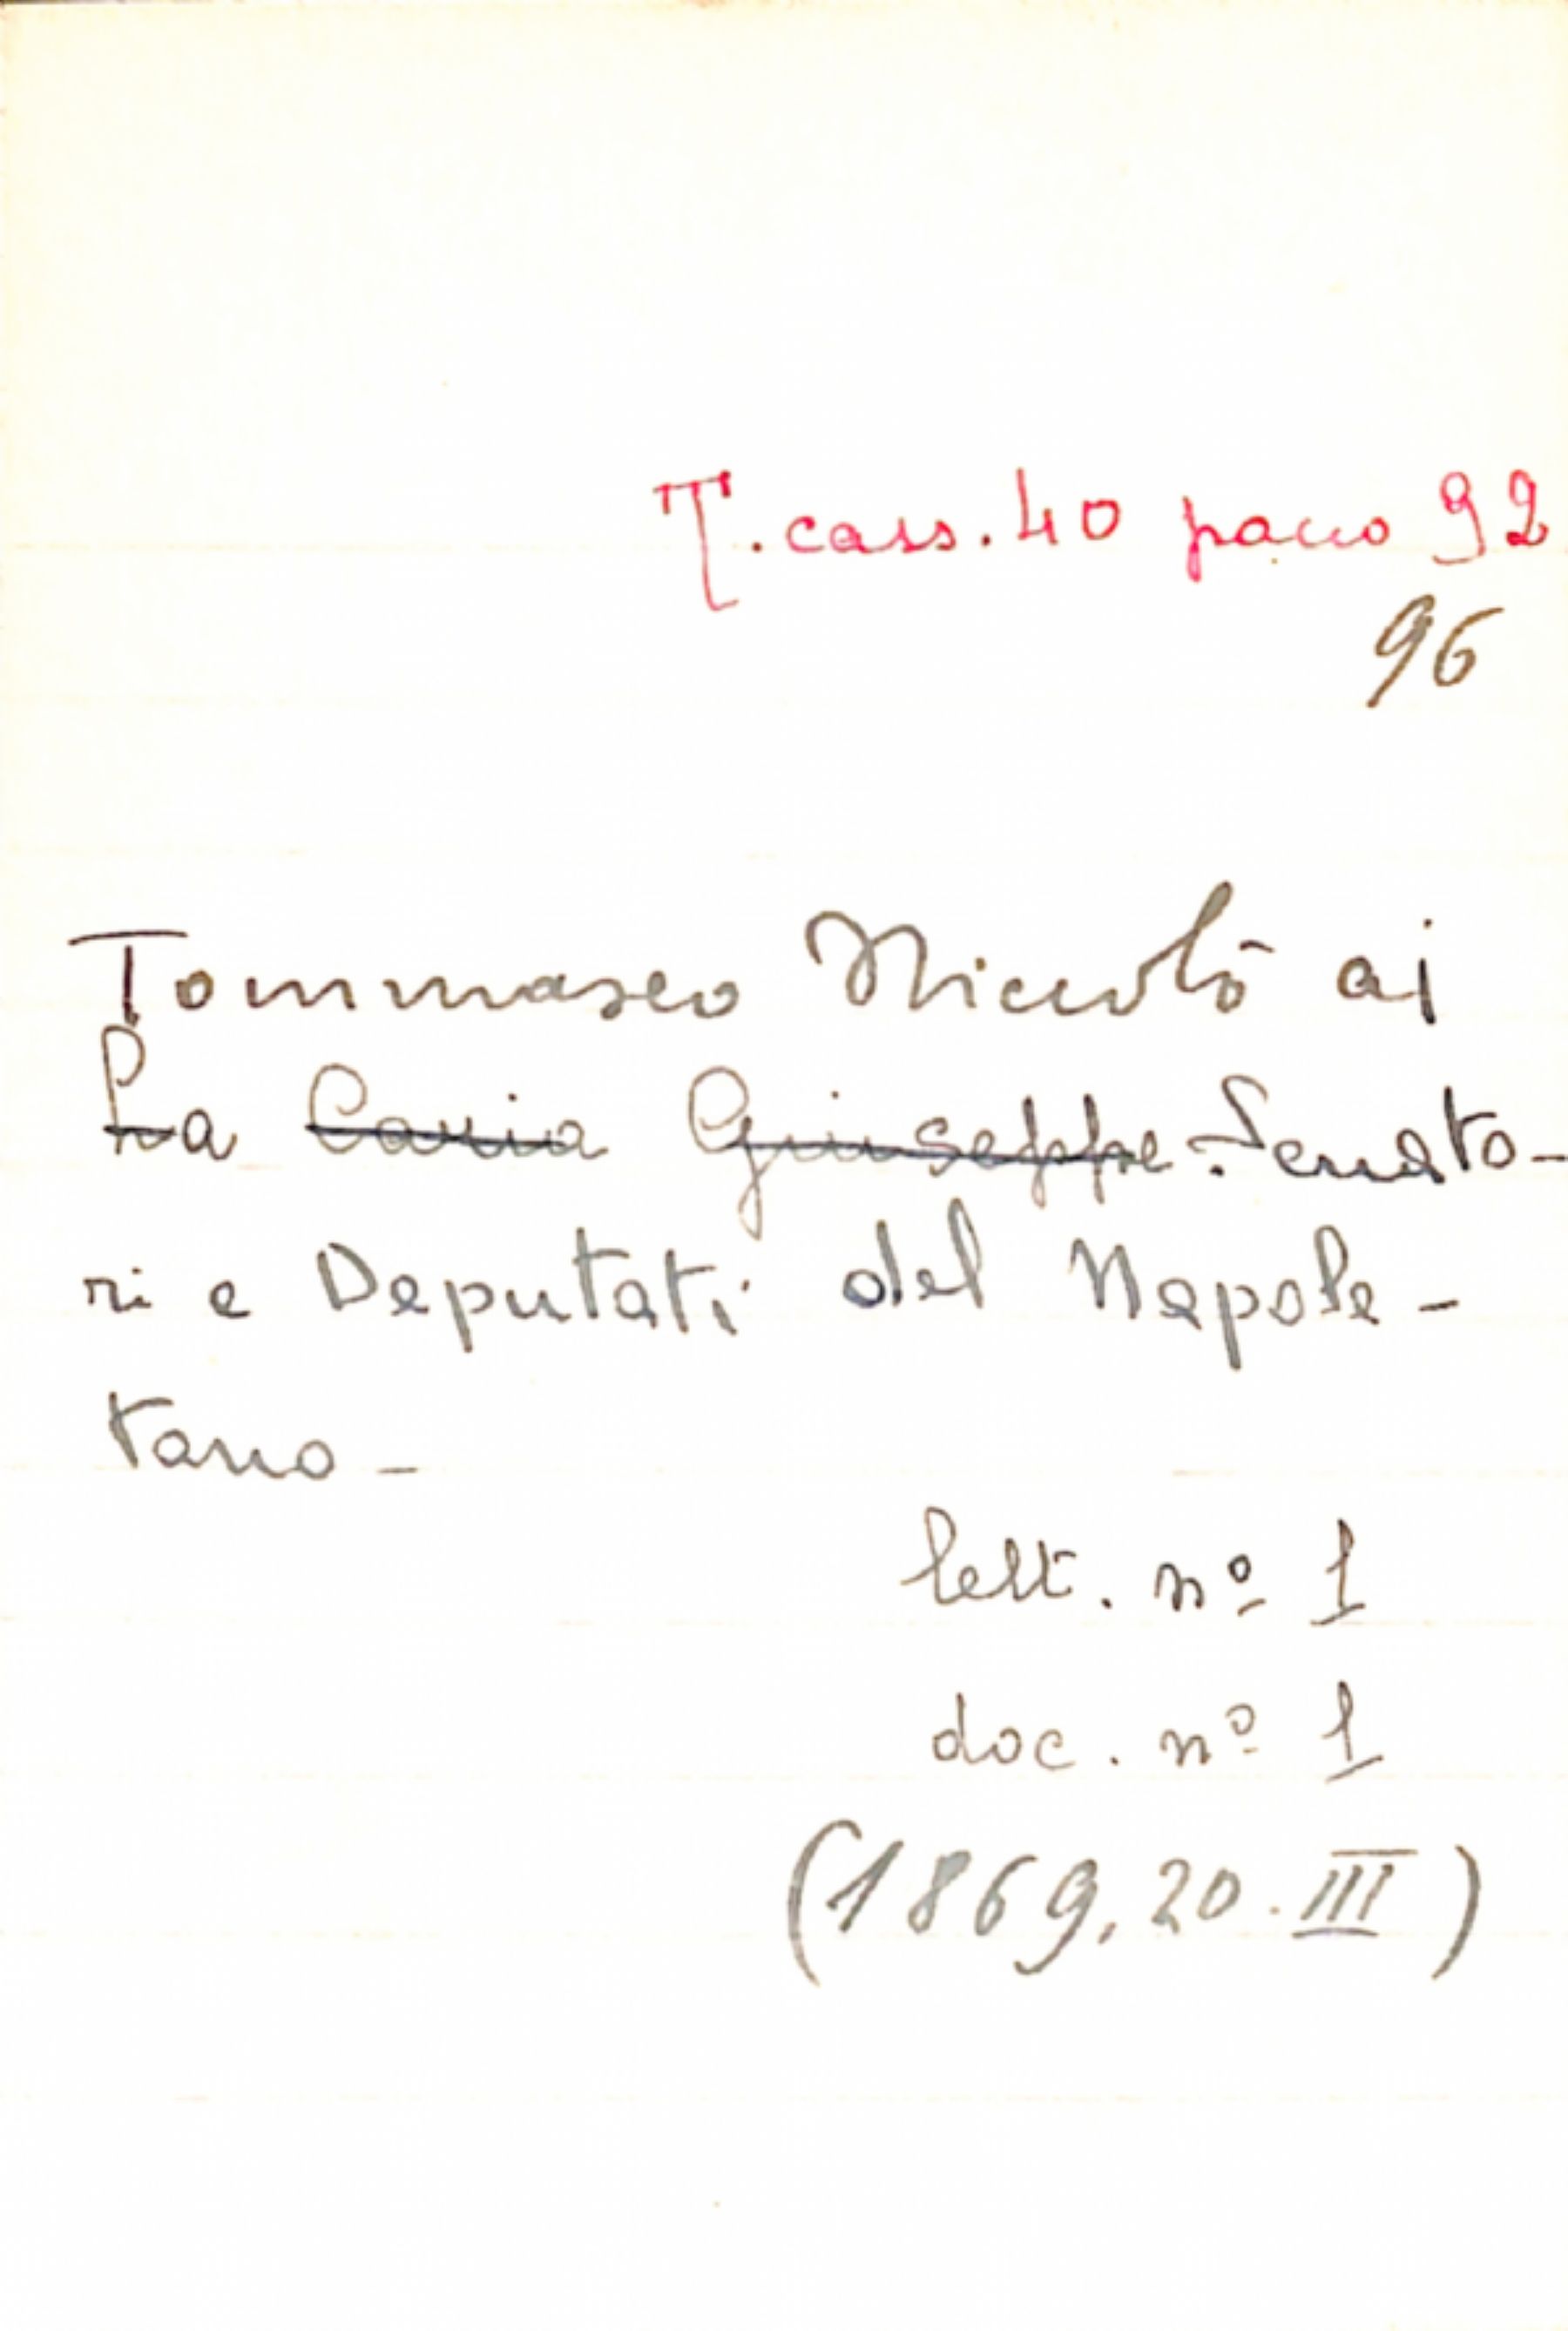 T. cass. 40 pacco 92
96
Tommaseo Niccolò ai
La Caria Giuseppe Senato-
ri e Deputati del Napole-
tano -
lett. nº 1
doc. nº 1
(1869, 20. III)